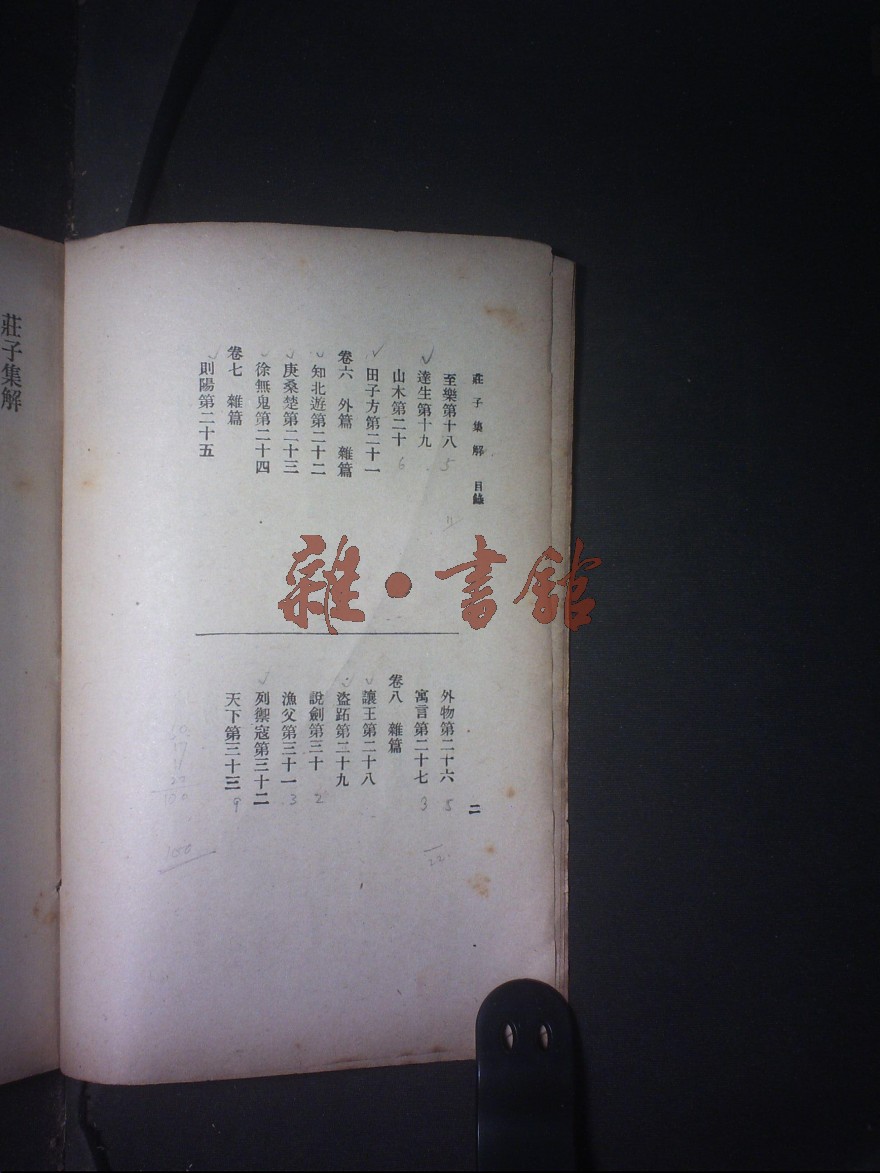 莊子集解 目錄
至樂第十八 5
達生第十九
山木第二十 6
田子方第二十一
卷六 外篇 雜篇
知北遊第二十二
庚桑楚第二十三
徐無鬼第二十四
卷七 雜篇
則陽第二十五
11
外物第二十六 5
寓言第二十七 3
卷八 雜篇
讓王第二十八
盜跖第二十九
說劍第三十 2
漁父第三十一 3
列禦寇第三十二
天下第三十三 9
二
22
17
100
莊子集解
雜·書館